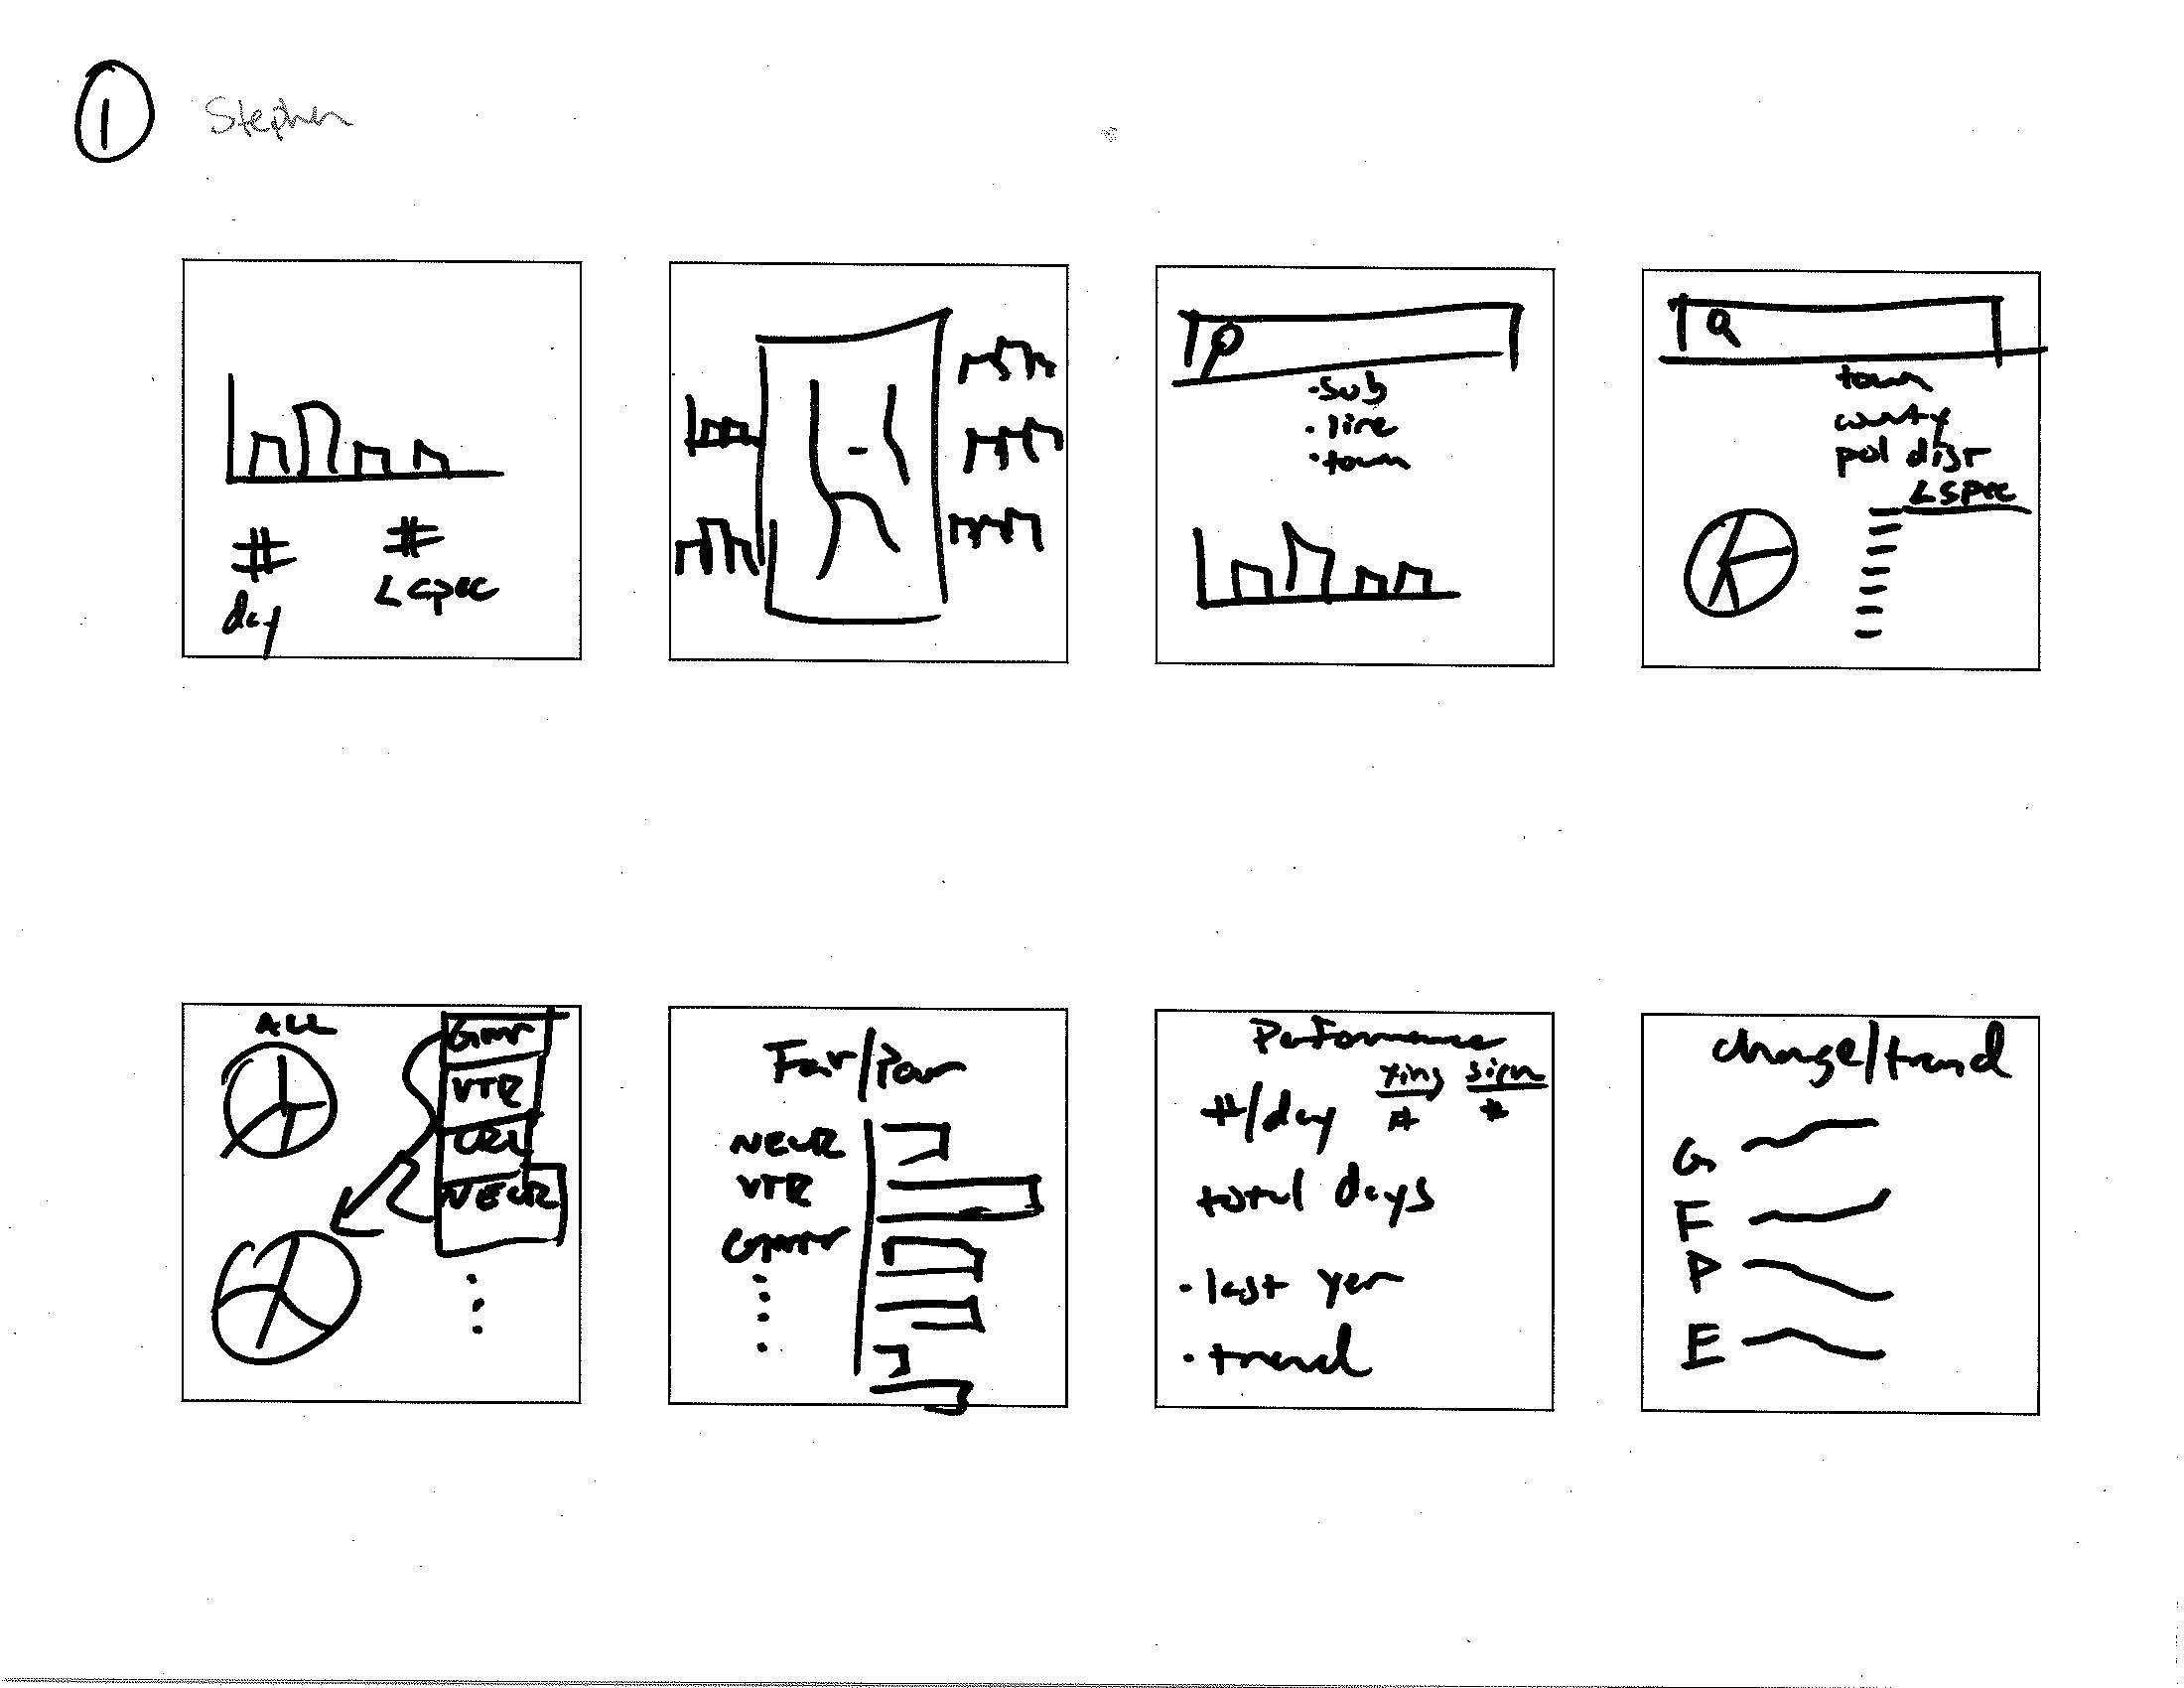 1 Stephen
# #
day L spec
• sub
• line
• town
town
county
pol dist
L spec
ALL
GMR
VTR
NECR
Fair/Poor
NECR
VTR
GMR
Performance
xing sign
#/day # #
total days
• last year
• trend
change/trend
G
F
P
E